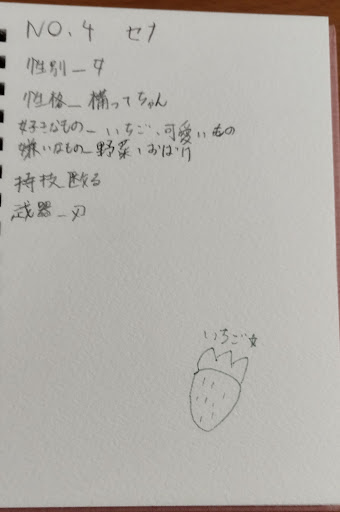 NO.4 セナ
性別_女
性格_構ってちゃん
好きなもの_いちご、可愛いもの
嫌いなもの_野菜、おばけ
特技 殴る
武器_刃
いちご☆